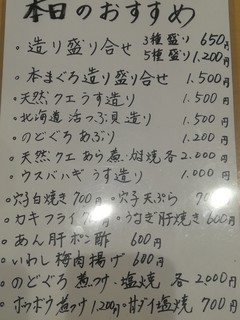 本日のおすすめ
・造り盛り合せ 3種盛り 650円
5種盛り 1.200円
・本まぐろ造り盛り合せ 1.500円
・天然クエうす造り 1.500円
・北海道 活つぶ貝造り 1.500円
・のどぐろあぶり 1.200円
・天然クエあら煮・塩焼 各2.000円
・ウスバハギうす造り 1.000円
・穴子白焼き 700円・穴子天ぷら 70
・カキフライ 700円・うなぎ肝焼き 600円
・あん肝ポン酢 600円
・いわし梅肉揚げ 600円
・のどぐろ煮つけ・塩焼 各2.000円
・ホウボウ煮つけ1.200円・甘ダイ塩焼 700円